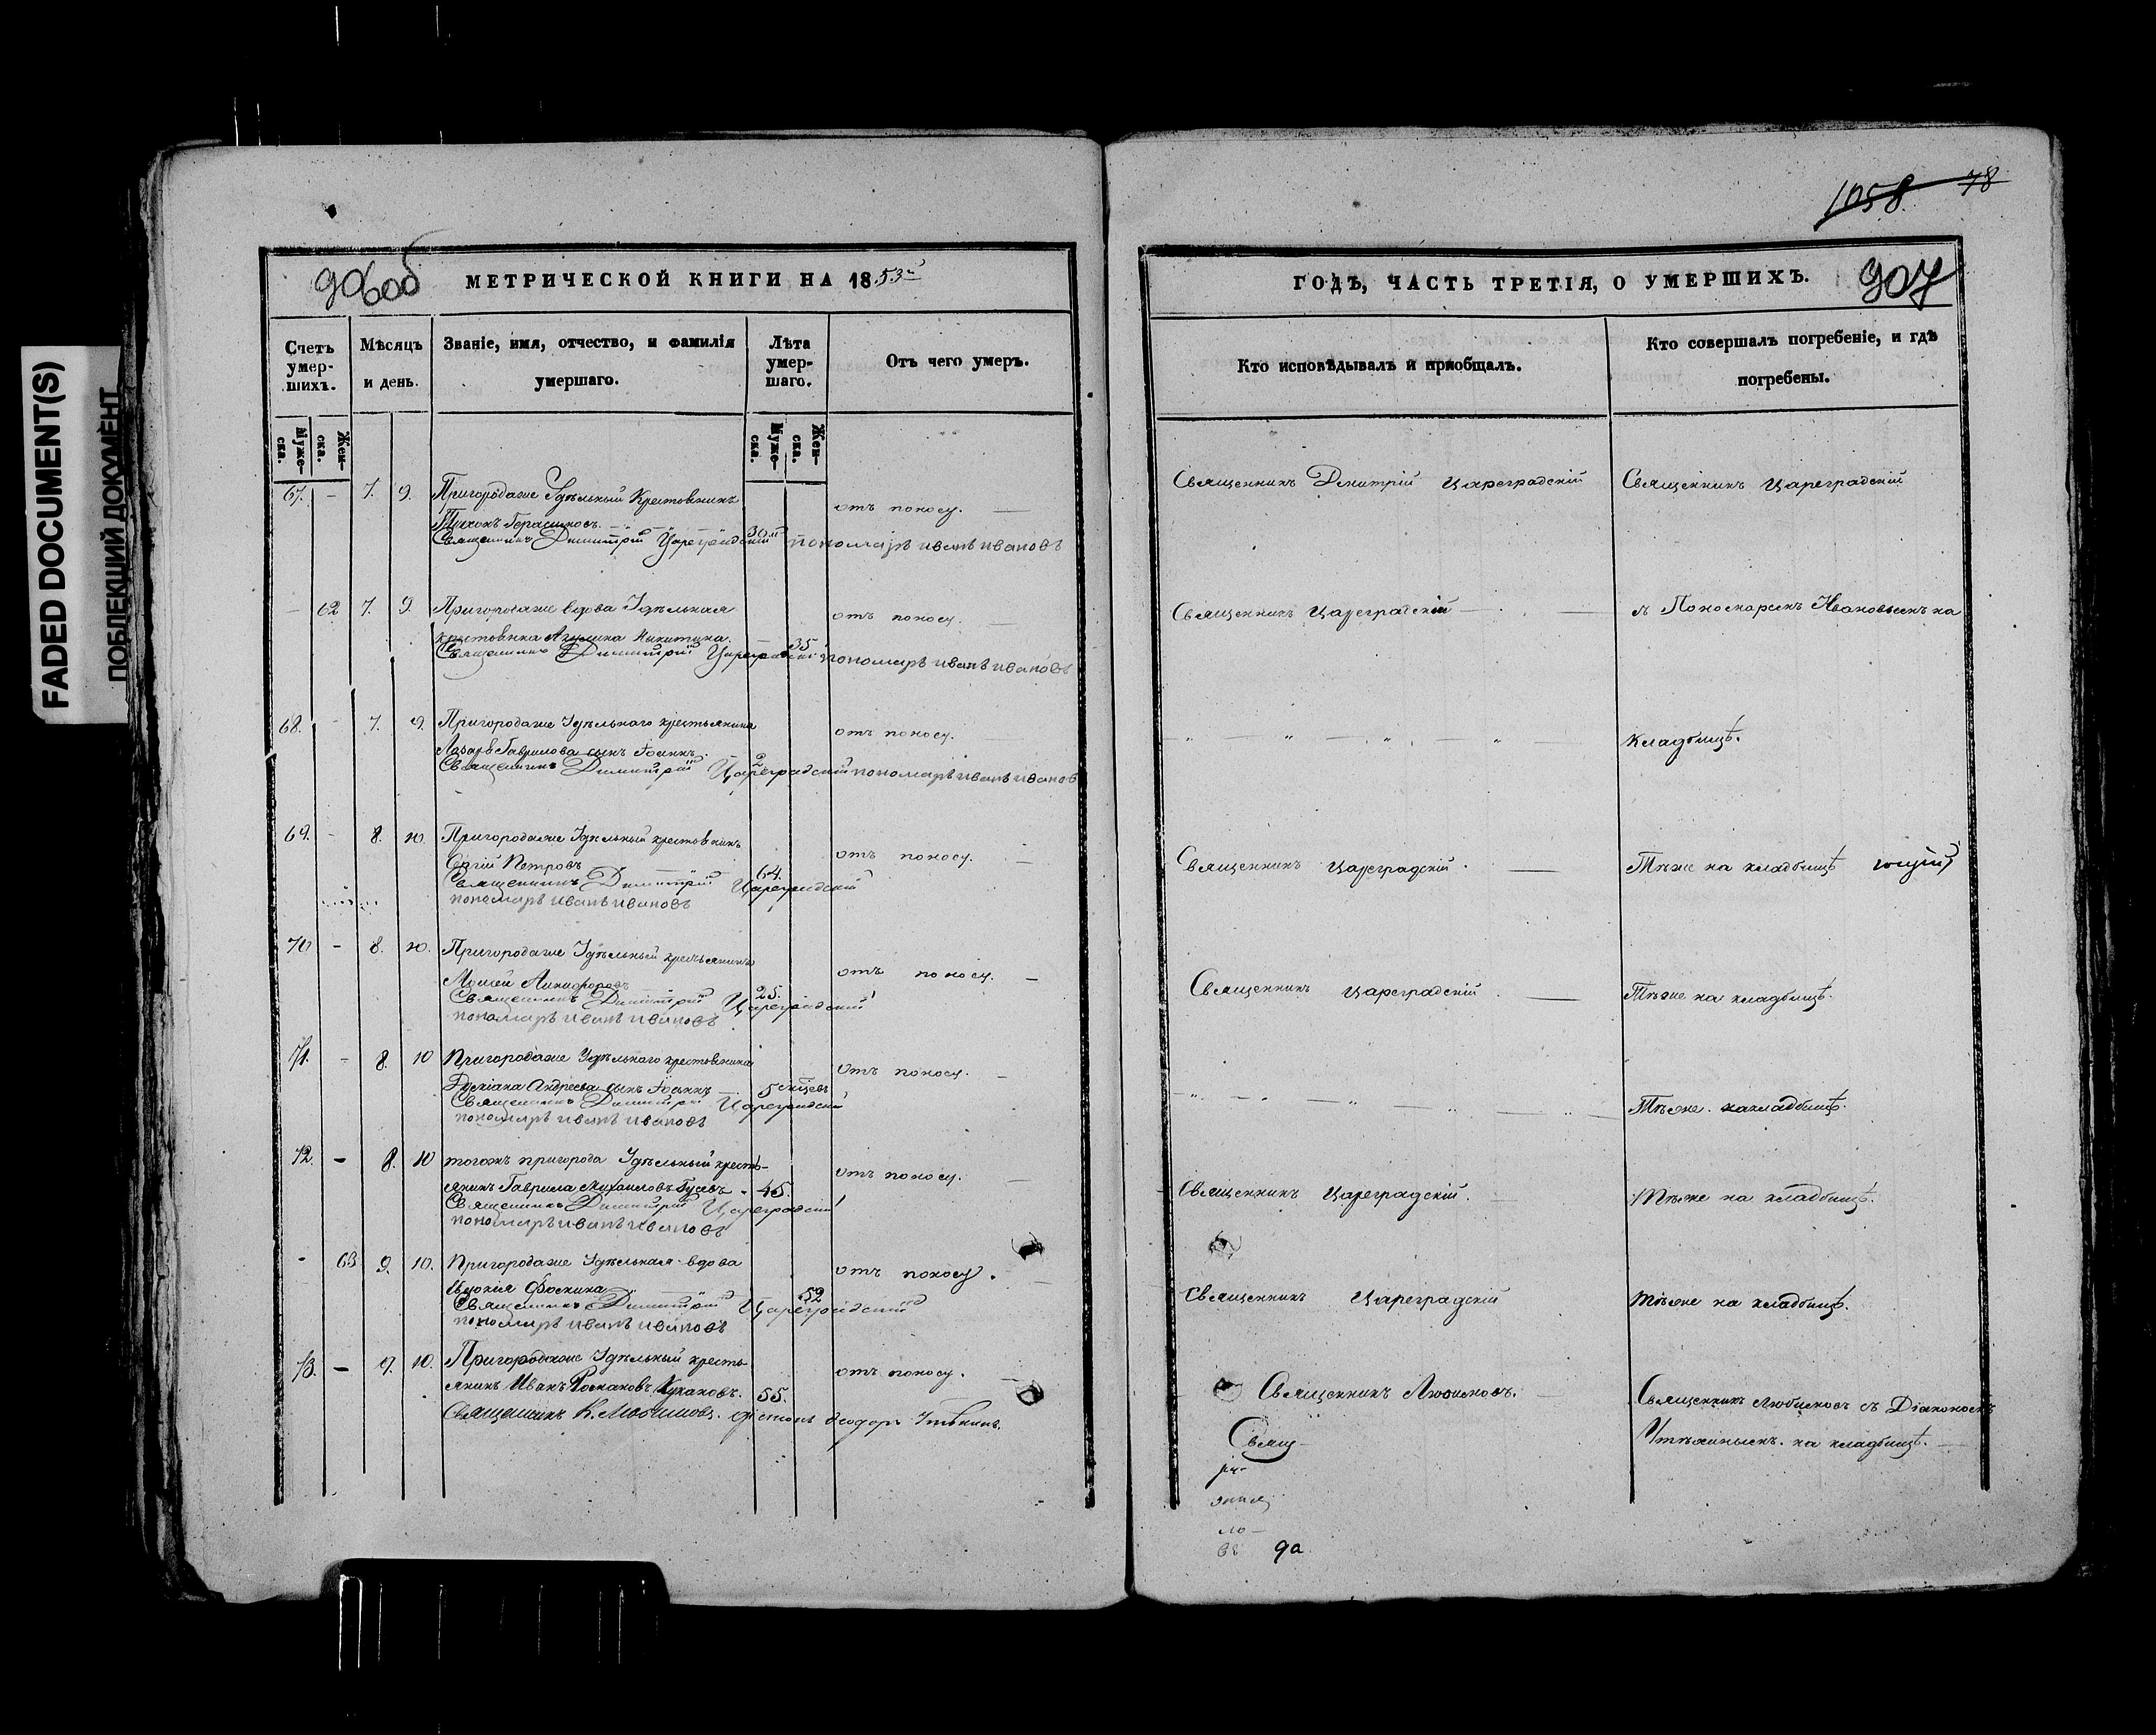 FADED DOCUMENT(S)
ПОБЛЕКШИЙ ДОКУМЕНТ
906об
МЕТРИЧЕСКОЙ КНИГИ НА 1853й
Счетъ умер-шихъ.
Муже-ска.
Жен-ска.
Мѣсяцъ и день.
Званіе, имя, отчество, и фамилія умершаго.
Лѣта умер-шаго.
Муже-ска.
Жен-ска.
Отъ чего умеръ.
67. - 7. 9. Пригородаже Удѣльный Крестьянинъ
Тихонъ Герасимовъ. 30 отъ поносу.
Священникъ Димитрій Цареградскій пономарь иванъ ивановъ
- 62 7. 9. Пригородаже вдова Удѣльная
крестьянка Акулина Никитина. 35 отъ поносу.
Священникъ Димитрій Цареградскій пономарь иванъ ивановъ
68. - 7. 9. Пригородаже Удѣльнаго крестьянина
Лазаря Гаврилова сынъ Іоаннъ. 2 отъ поносу.
Священникъ Димитрій Цареградскій пономарь иванъ иванов
69. - 8. 10. Пригородаже Удѣльный крестьянинъ
Сергій Петровъ 64. отъ поносу.
Священникъ Димитрій Цареградскій
пономарь иванъ ивановъ
70 - 8. 10. Пригородаже Удѣльный крестьянинъ
Моисей Никифоровъ 25. отъ поносу.
Священникъ Димитрій Цареградскій
пономарь иванъ ивановъ
71. - 8. 10 Пригородаже Удѣльнаго крестьянина
Андреева сынъ Іоаннъ 5 отъ поносу.
Священникъ Димитрій Цареградскій
пономарь иванъ ивановъ
72. - 8. 10 тогожъ пригорода Удѣльный кресть-
янинъ Гаврила Михаиловъ Гусевъ. 45. отъ поносу.
Священникъ Димитрій Цареградскій
пономарь иванъ ивановъ
- 63 9. 10. Пригородаже Удѣльная вдова
Фокина 52 отъ поносу.
Священникъ Димитрій Цареградскій
пономарь иванъ ивановъ
73. - 9. 10. Пригородаже Удѣльный кресть
янинъ Иванъ Романовъ 55. отъ поносу.
Священникъ К. Любимовъ. Діаконъ Ѳеодоръ
1058. 78
ГОДЪ, ЧАСТЬ ТРЕТІЯ, О УМЕРШИХЪ.
907
Кто исповѣдывалъ и приобщалъ.
Кто совершалъ погребеніе, и гдѣ погребены.
Священникъ Дмитрій Цареградскій Священникъ Цареградскій
Священникъ Цареградскій съ Пономаремъ Ивановымъ на
кладбищѣ.
Священникъ Цареградскій. Тѣже на кладбищѣ
Священникъ Цареградскій. Тѣже на кладбищѣ.
Тѣже. на кладбищѣ.
Священникъ Цареградскій. Тѣже на кладбищѣ.
Священникъ Цареградскій Тѣже на кладбищѣ.
Священникъ Любимовъ. Священникъ Любимовъ съ Діакономъ
на кладбищѣ.
Свящ-